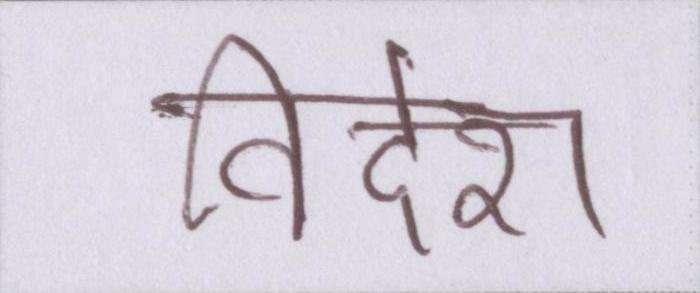 विदेश